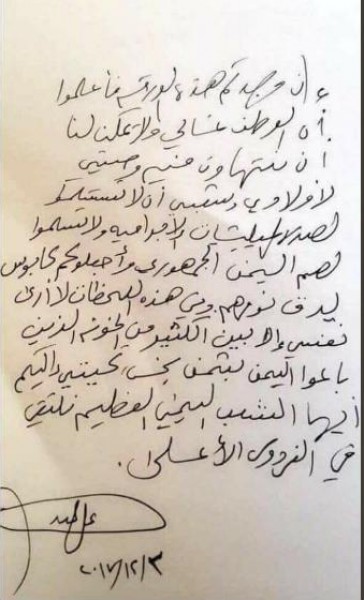 إن وجدتم هذه الورقة فأعلموا
بأن الوطن غالي ولا يمكن لنا
أن نتهاون فيه وصيتي
لأولادي وشعبي أن لا تستسلموا
لهذه المليشيات الإجرامية ولا تسلموا
لهم اليمن الجمهوري وأجعلوكم كابوس
يدق نومهم وفي هذه اللحظات لا أرى
نفسي إلا بين الكثير من الخونه الذين
باعوا اليمن بثمن بخس تحيتي إليكم
أيها الشعب اليمني العظيم نلتقي
في الفردوس الأعلى.
٢٠١٧/١٢/٣